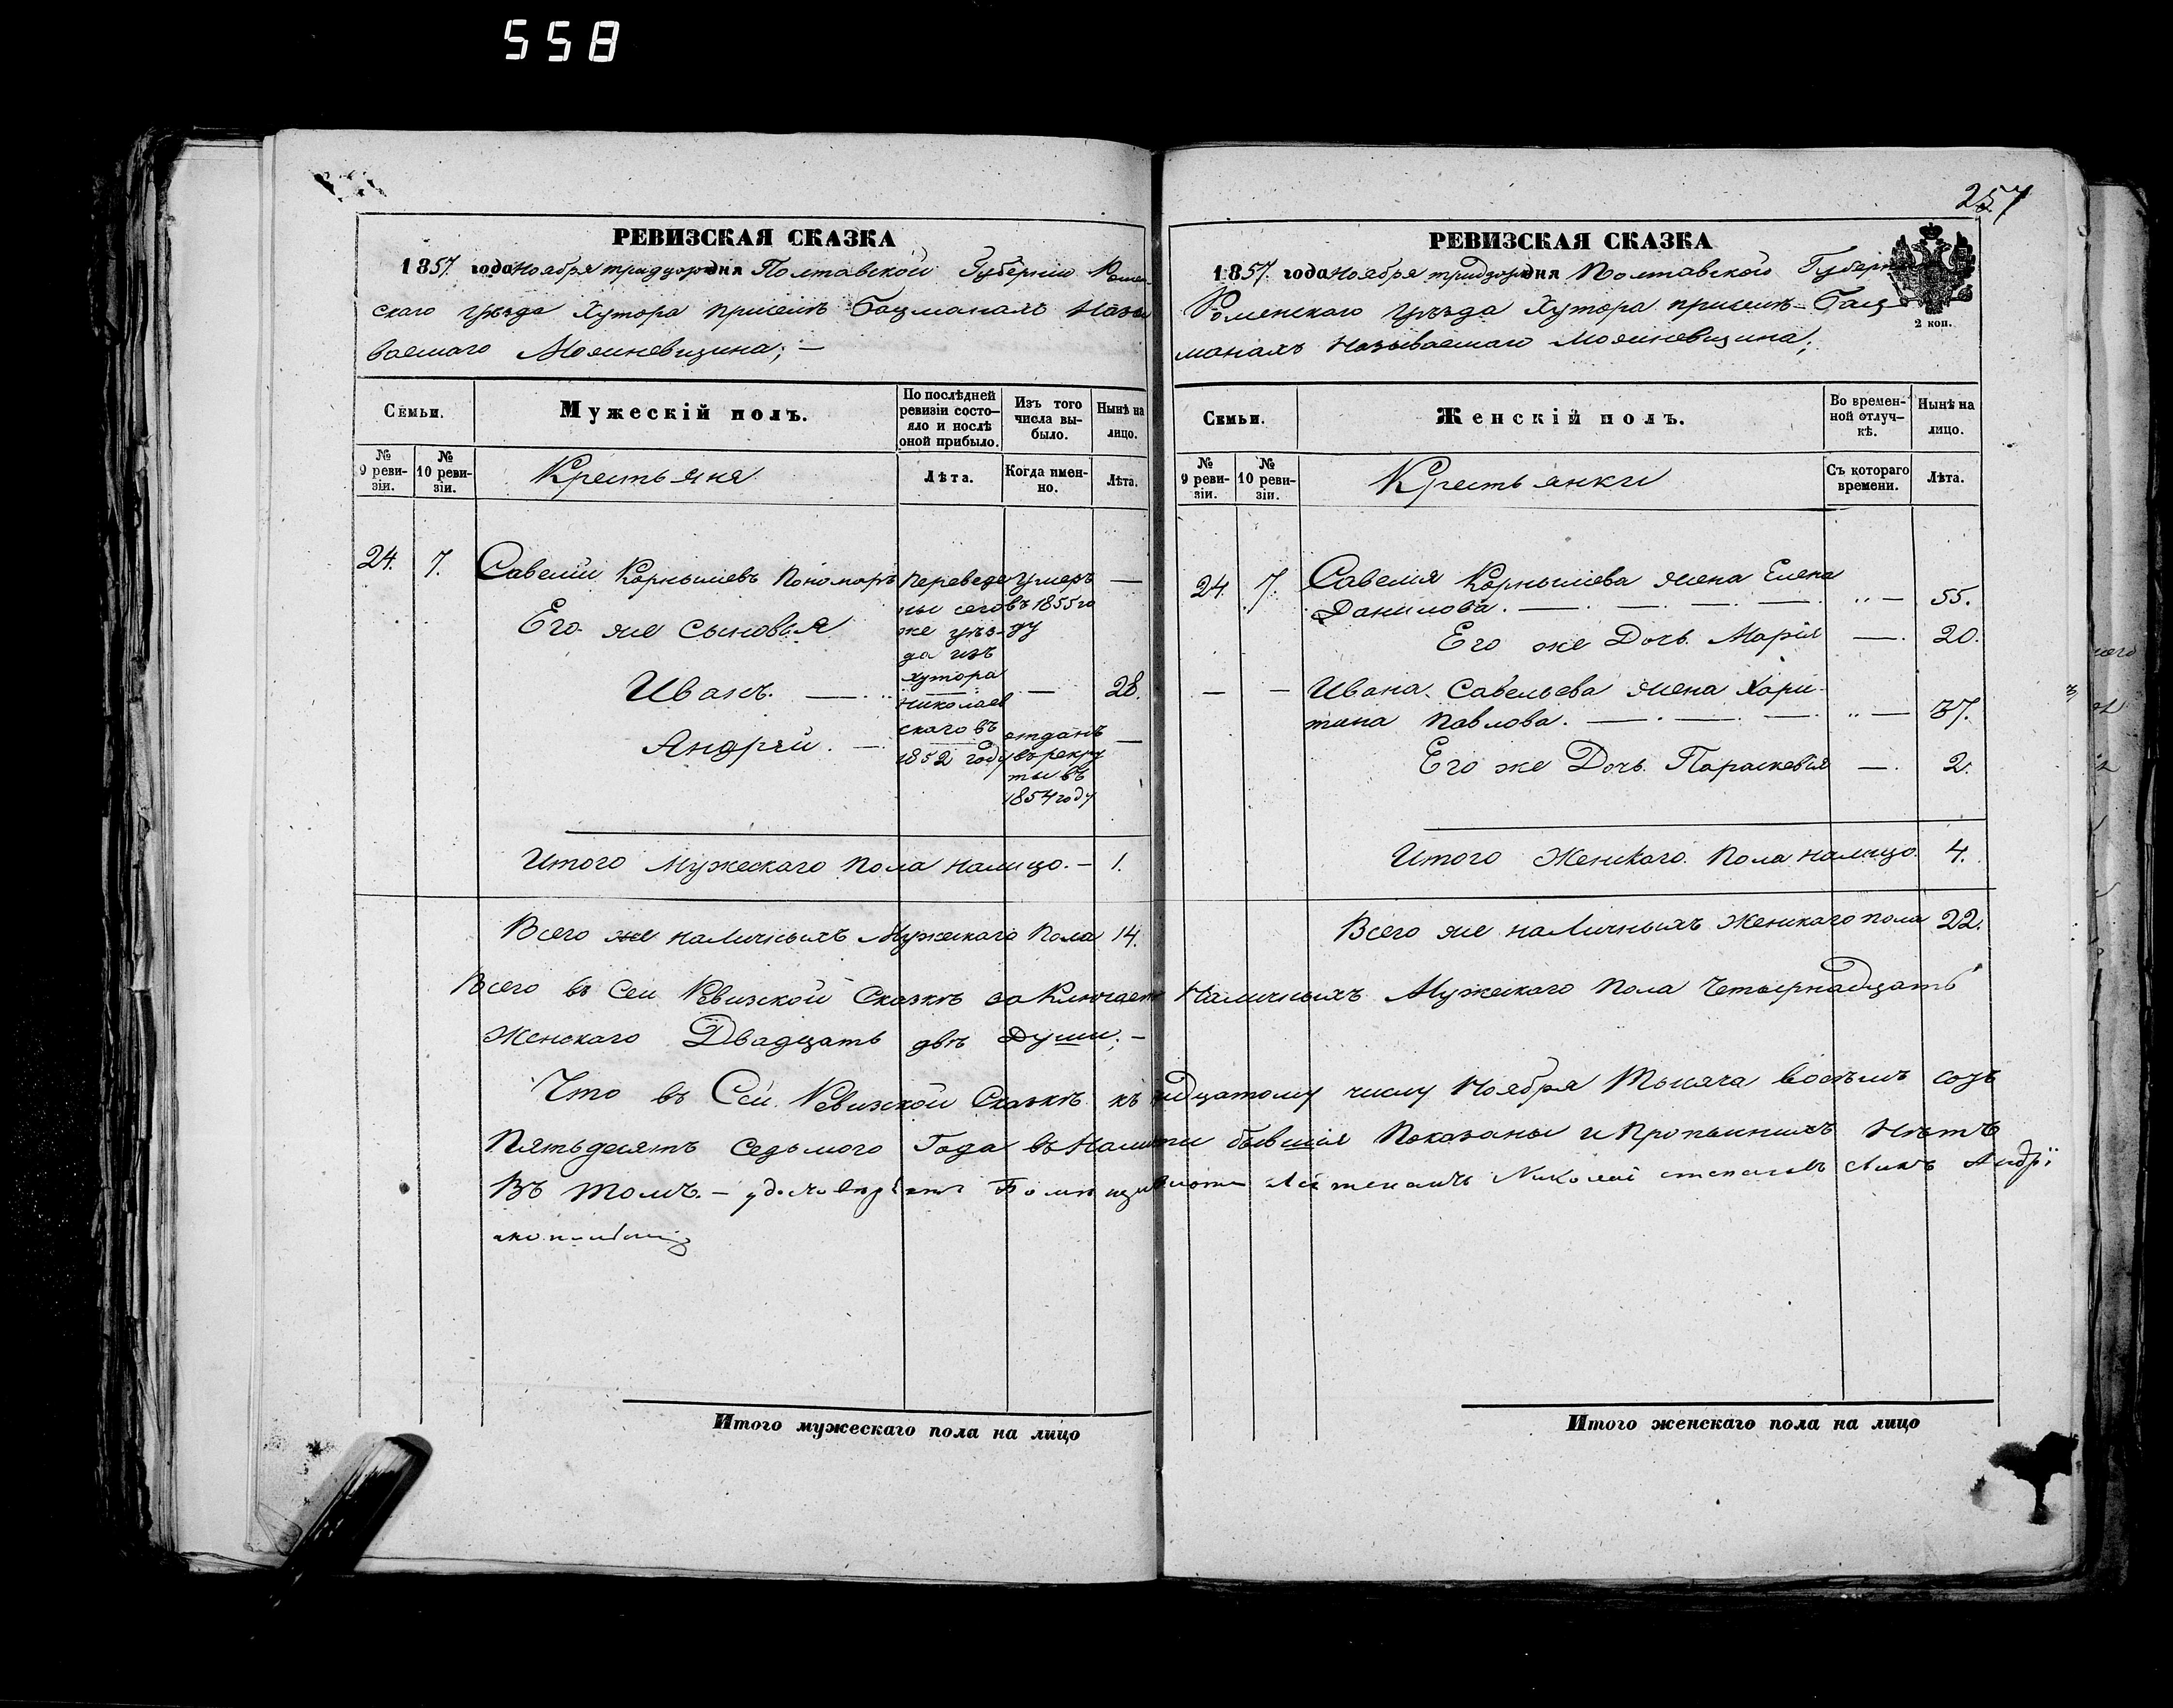 558
257
РЕВИЗСКАЯ СКАЗКА
1857. года Ноября тридцат дня Полтавской Губерніи Ромен-
скаго уѣзда Хутора присемъ Бацманахъ Назы
ваемаго
Семьи.
Мужескій полъ.
По послѣдней ревизіи состо-яло и послѣ оной прибыло.
Изъ того числа вы-было.
Нынѣ на лицо.
№ 9 реви-зіи.
№ 10 реви-зіи.
Крестьяня
Лѣта.
Когда имен-но.
Лѣта.
24. 7. Савелий Корнышевъ Пономаръ
переведены сего же уѣз-да изъ хутора Николаев скаго въ 1852 году
умеръ въ 1855 го ду
—
Его же сыновья
Иванъ. — — 28.
Андрѣй. —
отданъ въ рекру ты въ 1854 году
—
Итого Мужескаго пола налицо. — 1.
Всего же наличныхъ Мужескаго Пола 14.
РЕВИЗСКАЯ СКАЗКА
1857. года Ноября тридцат дня Полтавской Губерніи
Роменскаго уѣзда Хутора присемъ Бац
манахъ Называемаго
2 коп.
Семьи.
Женскій полъ.
Во времен-ной отлуч-кѣ.
Нынѣ на лицо.
№ 9 реви-зіи.
№ 10 реви-зіи.
Крестьянки
Съ котораго времени.
Лѣта.
24. 7. Савелія Корнышева жена Елена
Данилова. — — — — „ — 55.
Его же Дочь Марія — 20.
— — Ивана Савельева жена Хари-
тина Павлова. — — — „ — 37.
Его же Дочь Параскевія — 2.
Итого Женскаго Пола налицо 4.
Всего же наличныхъ Женскаго пола 22.
Всего въ сей Ревизской Сказкѣ заключает Наличныхъ Мужескаго Пола Четырнадцать
Женскаго Двадцать двѣ Души; —
Что въ Сей Ревизской Сказкѣ къ дцатому числу Ноября Тысяча восѣмь сотъ
Пятьдесятъ Седьмого Года въ Наличности бывшія Показаны и Прописныхъ Нѣтъ
Въ томъ. — удостовѣряетъ Николай
Итого мужескаго пола на лицо
Итого женскаго пола на лицо